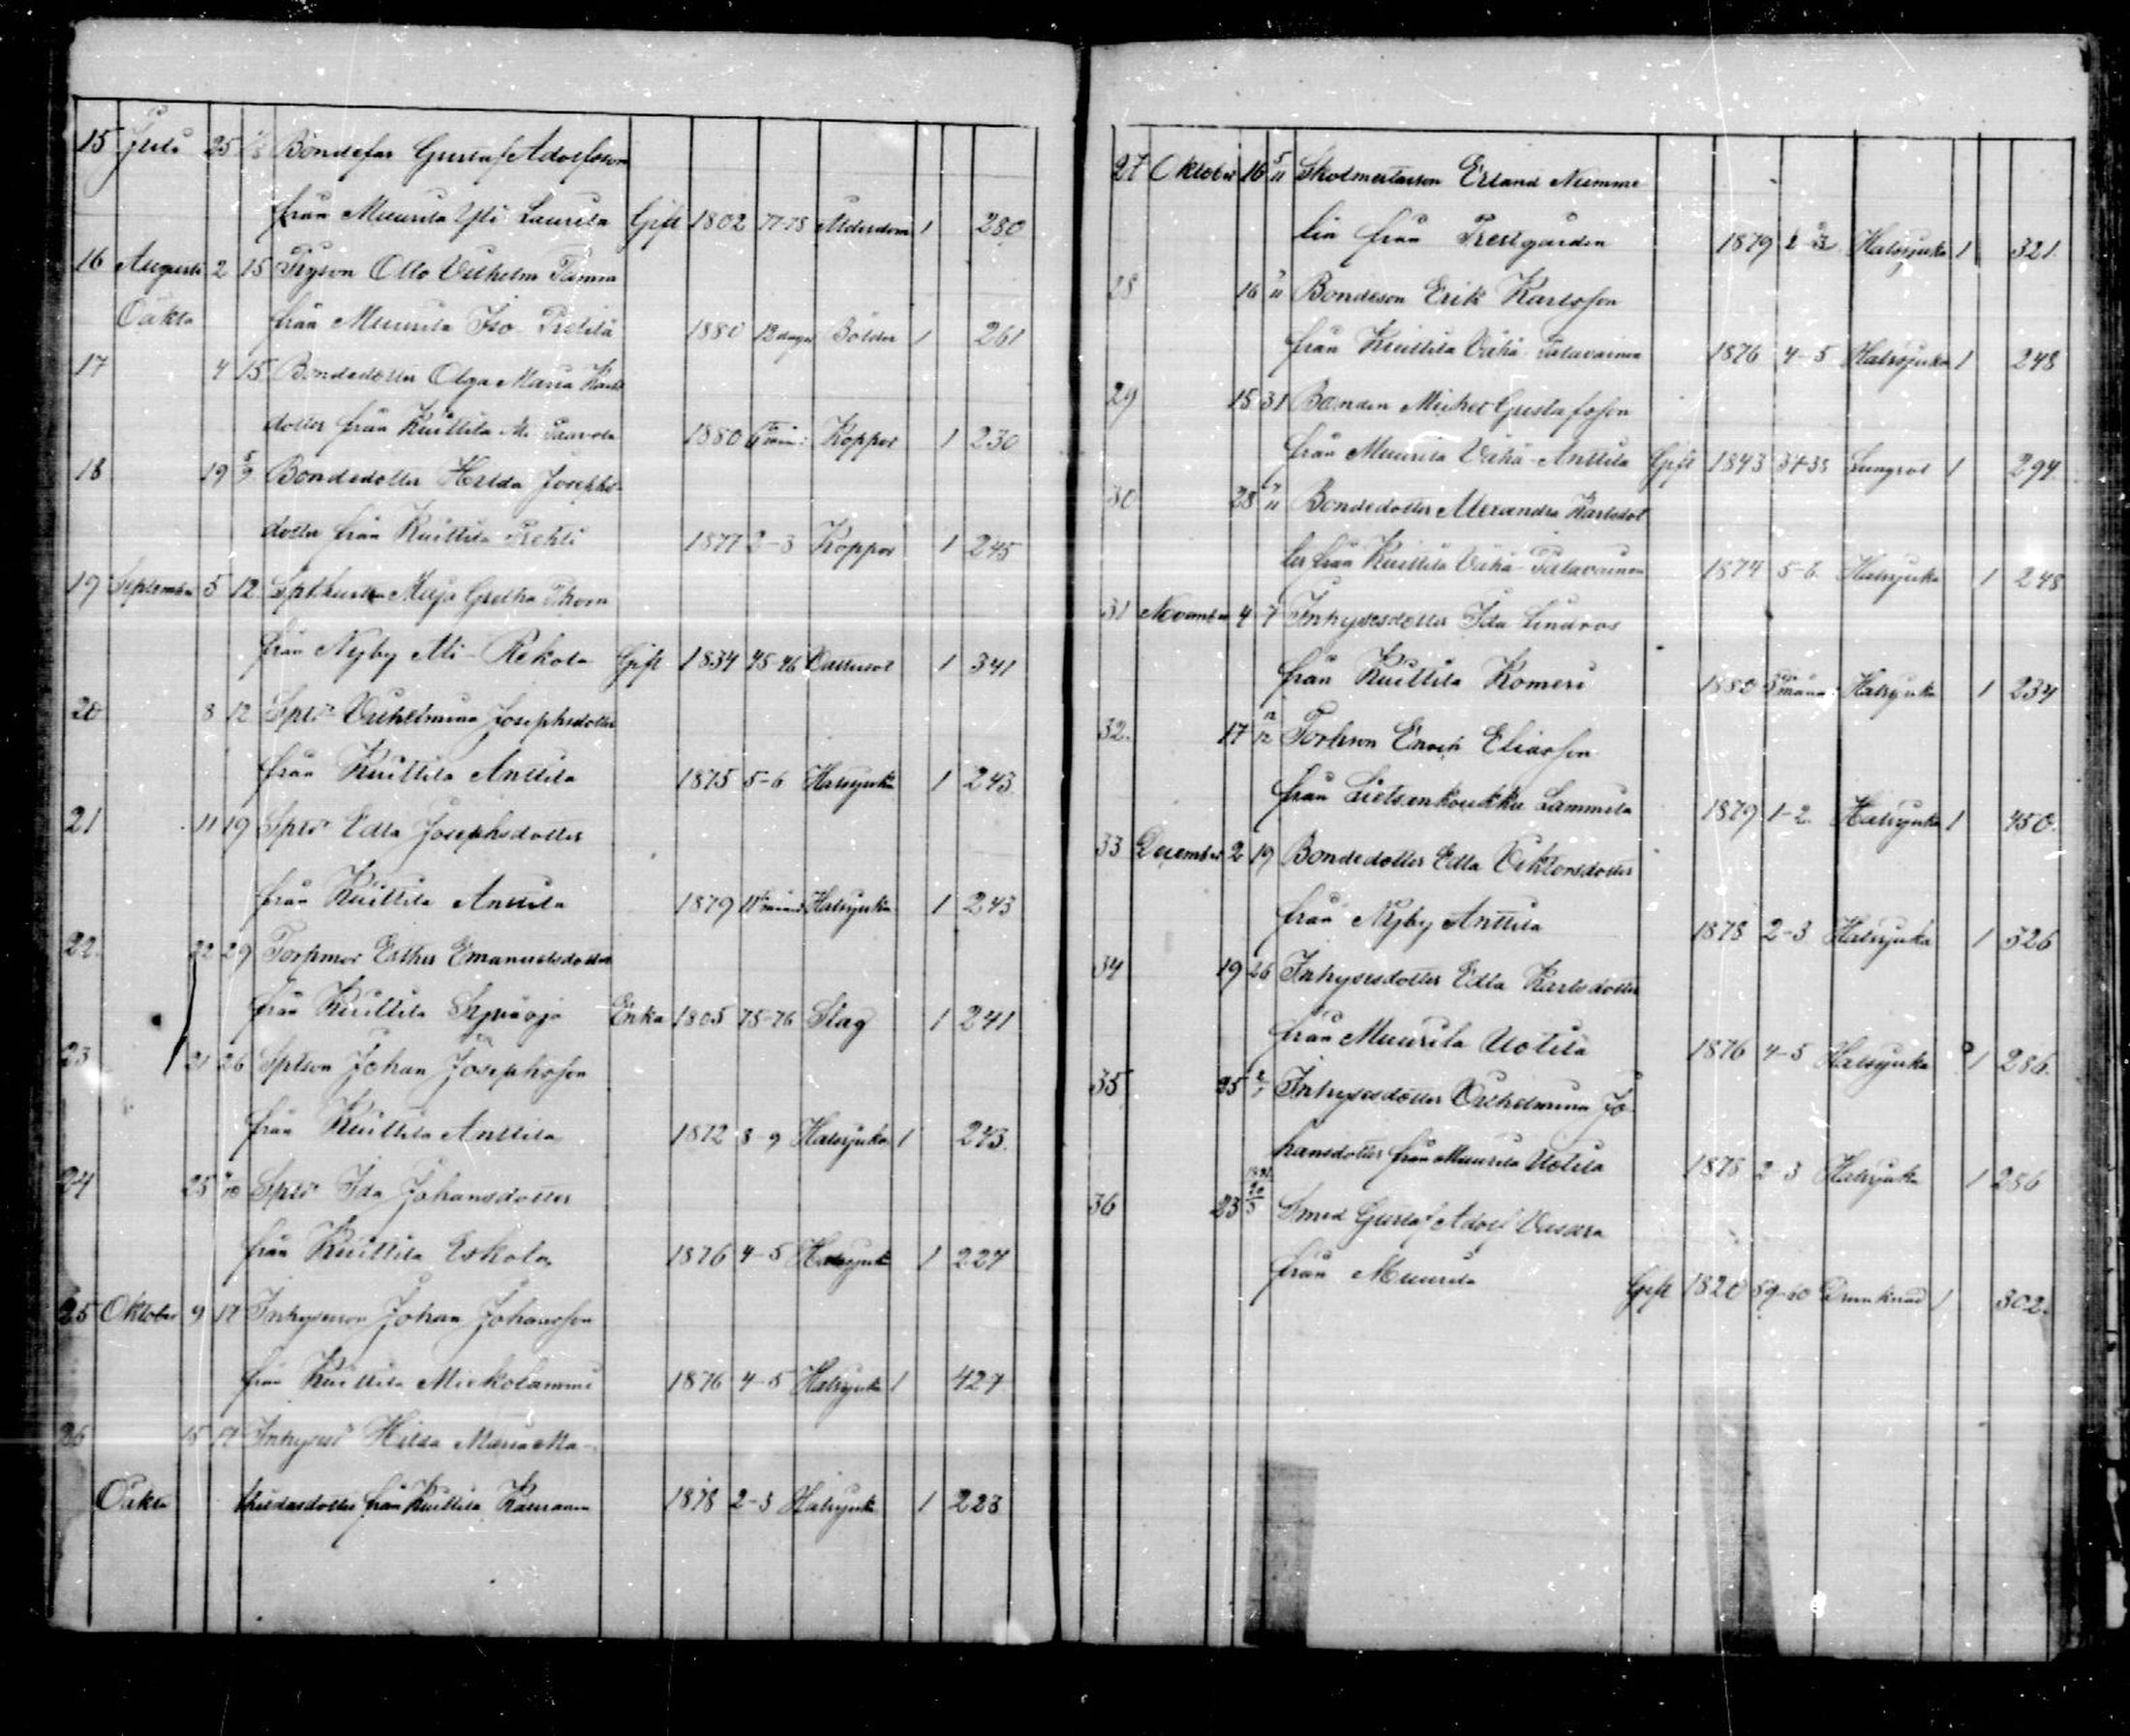 15 Juli 25 1/8 Bondefar Gustaf Adolfsson
från Muurila Yli Laurila Gift 1802 77-78 Ålderdom 1 280
16 Augusti 2 15 Otto Vilhelm
Oäkta från Muurila Iso 1880 12 dagar Bölder 1 261
17 4 15 Bondedotter Olga Maria Karls
dotter från Kuittila Ali Paavola 1880 Koppor 1 230
18 19 5/9 Bondedotter Hilda Josephs
dotter från Kuittila 1877 2-3 Koppor 1 245
19 September 5 12 Maja Gretha Thorn
från Nyby Ali-Rekola Gift 1834 45-46 Vattusot 1 341
20 8 12 Vilhelmina Josephsdotter
från Kuittila Anttila 1875 5-6 Halssjuka 1 243
21 11 19 Edla Josephsdotter
från Kuittila Anttila 1879 Halssjuka 1 243
22. 22 29 Torpmor Esther Emanuelsdotter
från Kuittila Enka 1805 75-76 Slag 1 241
23 21 26 Sptson Johan Josephsson
från Kuittila Anttila 1872 8-9 Halssjuka 1 243
24 25 Ida Johansdotter
från Kuittila Eskola 1876 4-5 Halssjuka 1 227
25 Oktober 9 17 Inhysesson Johan Johansson
från Kuittila Mickolammi 1876 4-5 Halssjuka 1 427
26 15 17 Hilda Maria Ma-
Oäkta thildasdotter från Kuittila 1878 2-3 Halssjuka 1 223
27 Oktober 16 5/11 Skolmästarson Erland Numme
lin från Prestgården 1879 Halssjuka 1 321.
28 16 " Bondeson Erik Karlsson
från Kuittila Vähä 1876 4-5 Halssjuka 1 248
29 15 31 Bonden Gustafsson
från Muurila Vähä-Anttila Gift 1843 Lungsot 1 294
30 28 Bondedotter Alexandra Karlsdot
ter från Kuittila Vähä 1874 5-6 Halssjuka 1 248
31 November 4 7 Inhysesdotter Ida Lindroos
från Kuittila Komeri 1880 Halssjuka 1 234
32. 17 Torpson Enoch Eliasson
från Lietsankoukku Lammila 1879 1-2. Halssjuka 1 450.
33 December 2 19 Bondedotter Edla Viktorsdotter
från Nyby Anttila 1878 2-3 Halssjuka 1 326
34 19 26 Inhysesdotter Edla Karlsdotter
från Muurila Uotila 1876 4-5 Halssjuka 1 286.
35 25 Inhysesdotter Vilhelmina Jo
hansdotter från Muurila Uotila 1878 2-3 Halssjuka 1 286
36 23 Smed Gustaf Adolf Vasara
från Muurila Gift 1820 59-60 Drunknad 1 302.